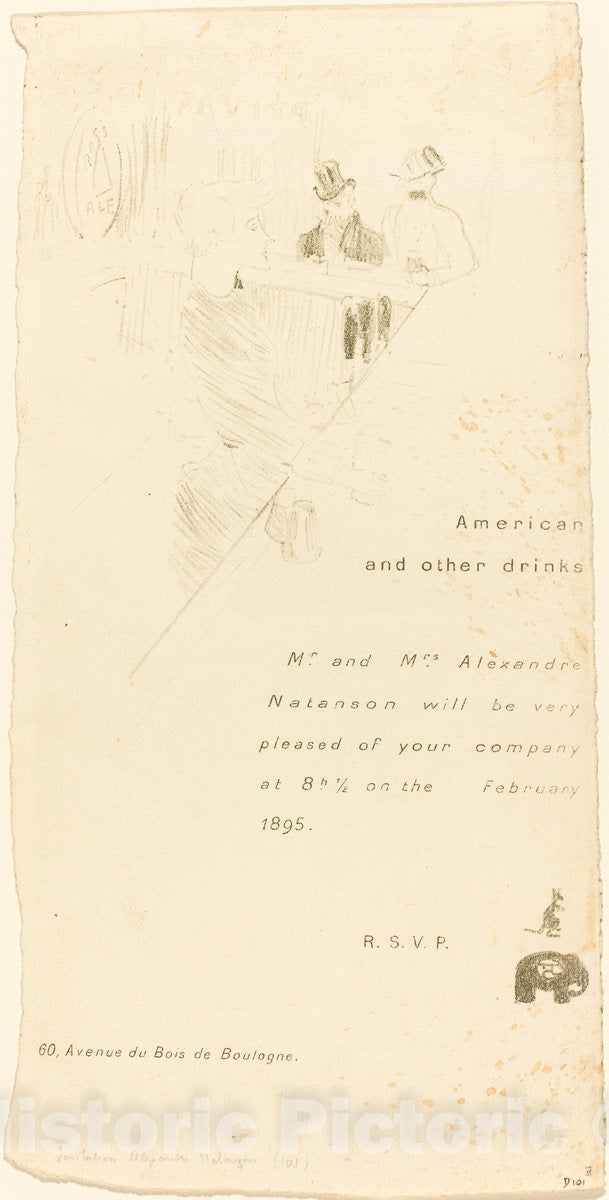 BASS
ALE
American
and other drinks
Mr. and Mrs. Alexandre
Natanson will be very
pleased of your company
at 8h ½ on the February
1895.
R. S. V. P.
60, Avenue du Bois de Boulogne.
Historic Pictoric
Invitation Alexandre Natanson (101)
II
D101